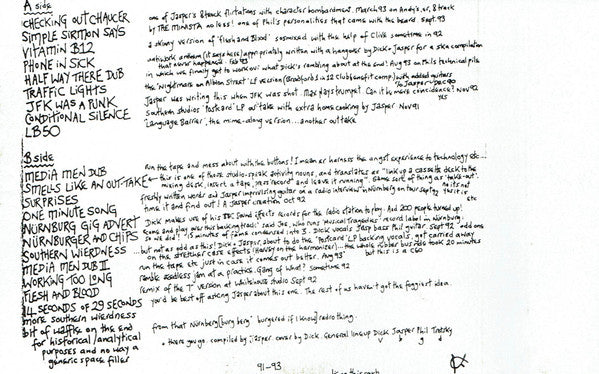 A side
CHECKING OUT CHAUCER
SIMPLE SIRMON SAYS
VITAMIN B12
PHONE IN SICK
HALF WAY THERE DUB
TRAFFIC LIGHTS
JFK WAS A PUNK
CONDITIONAL SILENCE
LB50
one of Jasper's 8 track flirtations with character bombardment. March 93 on Andy's, er, 8 track
by THE MINISTA no less! one of Phil's personalities that came with the beard. Sept. 93
a skinny version of 'flesh and Blood' sesmixed with the help of Clive sometime in 92
antiwork anthem (it says here) appropriately written with a hangover by Dick + Jasper for a ska compilation
that never happened - feb 93
in which we finally get to work out what Dick's rambling about at the end! Aug 93 on Phil's technical pile
the 'Nightmare on Albion Street' LP version (Bradford's 1 in 12 club benefit comp) with added guitars
to Jasper - Dec 90
Jasper was writing this when JFK was shot. Max plays trumpet. Can it be mere coincidence? Nov 92
Southern studios 'Postcard' LP out take with extra home cooking by Jasper Nov 91
yes
'Language Barrier', the mime-along version... another outtake
B side
MEDIA MEN DUB
SMELLS LIKE AN OUT-TAKE
SURPRISES
ONE MINUTE SONG
NURNBURG GIG ADVERT
NÜRNBURGER AND CHIPS
SOUTHERN WIERDNESS
MEDIA MEN DUB II
WORKING TOO LONG
FLESH AND BLOOD
14 SECONDS OF 29 SECONDS
more southern wierdness
bit of waffle on the end
for historical/analytical
purposes and no way a
generic space filler
run the tape and mess about with the buttons! I mean er harness the angst experience to technology etc...
this is one of those studio-speak activity nouns, and translates as "link up a cassette deck to the
mixing desk, insert a tape, press 'record' and leave it running". Same sort of thing as 'take-out'.
freshly written words and Jasper improvising guitar on a radio interview in Nürnberg on tour sept 92
no its not
time it and find out! A Jasper creation Oct 92
etc
Dick makes use of his BBC Sound effects records for the radio station to play. And 200 people turned up!
'come and play over this backing track' said Joe, who runs 'Musical Tragedies' record label in Nürnberg.
so we did! 15 minutes of fame condensed into 3. Dick vocals Jazy bass Phil guitar. Sept 92
...but not as odd as this! Dick + Jasper about to do the 'Postcard' LP backing vocals, get carried away
run the tape etc just in case it comes out better. Aug 93
but this is a C60
ramble endless jam at a practice. Gang of what? sometime 92
remix of the 7" version at Whitehouse studio Sept 92
you'd be best off asking Jasper about this one. The rest of us haven't got the foggiest idea.
from that Nürnberg [burg berg burgered if I know] radio thing.
+ there you go. compiled by Jasper cover by Dick. General lineup Dick Jasper Phil Trotsky
v b g d
91-93